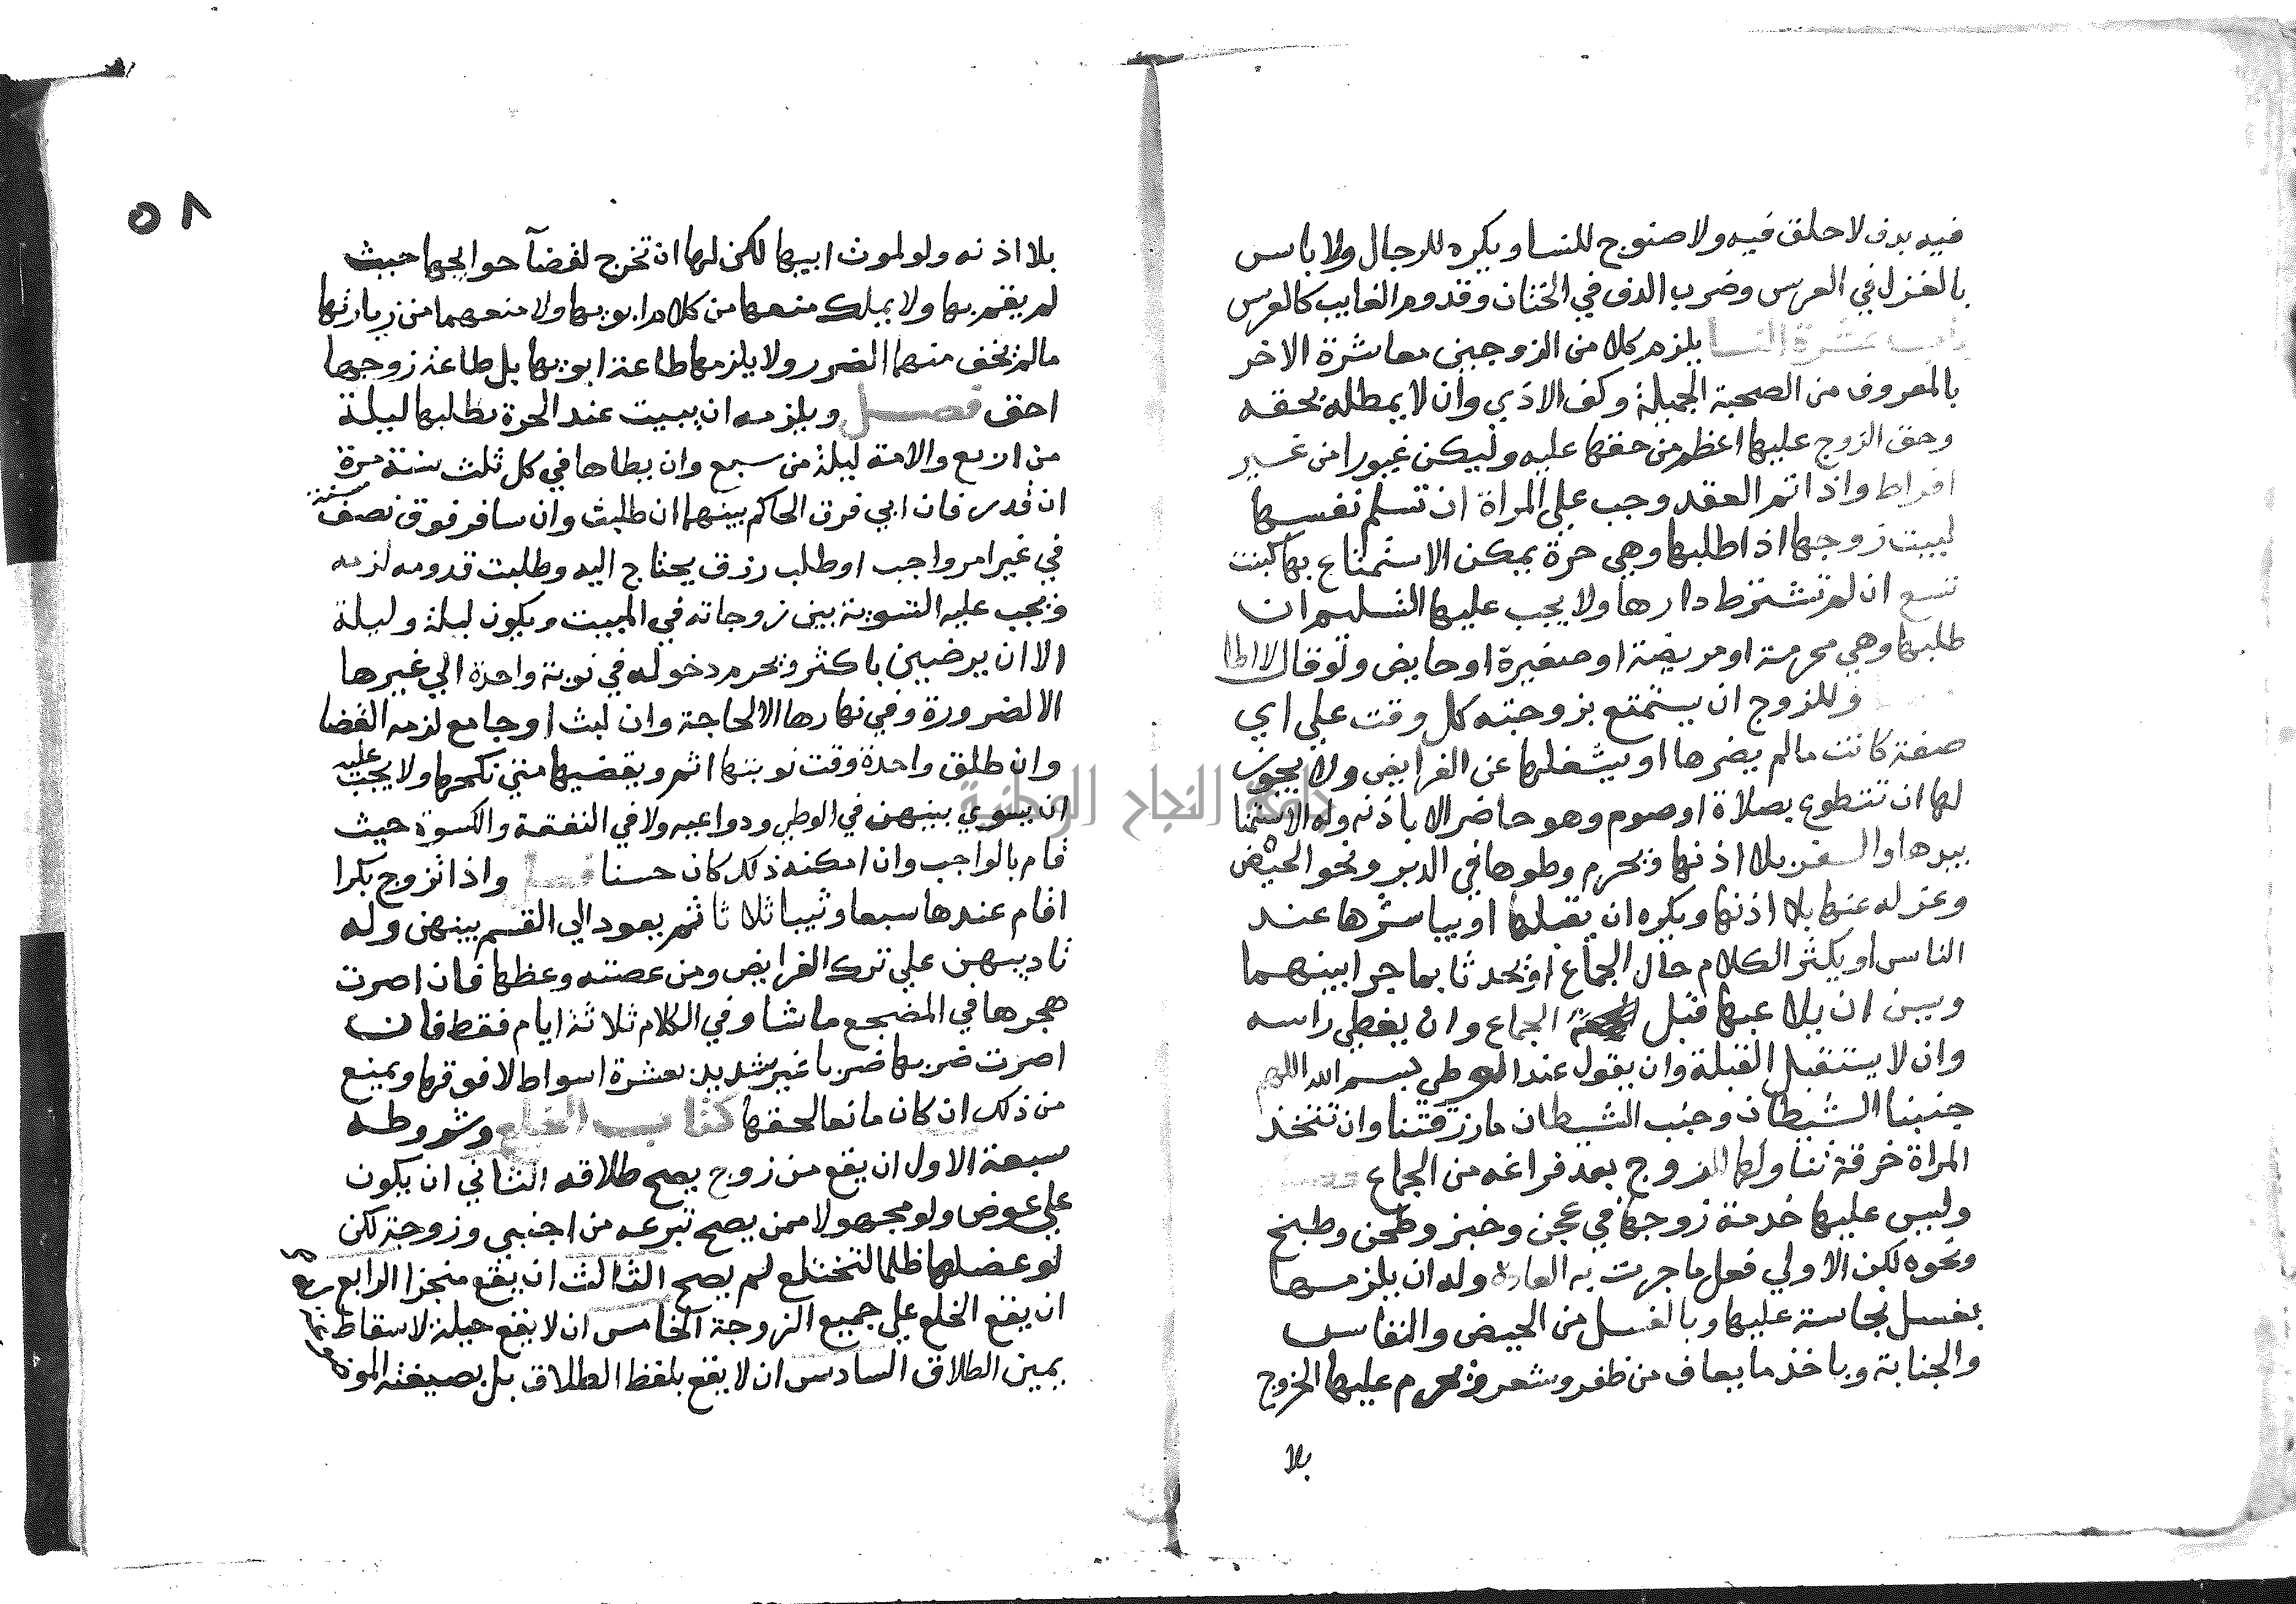 فيه بدف لا حلق فيه ولا صنوج للنسا ويكره للرجال ولا باس
بالغزل في العرس وضرب الدف في الختان وقدوم الغايب كالعرس
باب عشرة النسا يلزم كلا من الزوجين معاشرة الاخر
بالمعروف من الصحبة الجميلة وكف الاذي وان لا يمطله بحقه
وحق الزوج عليها اعظم من حقها عليه وليكن غيورا من غير
افراط واذا تم العقد وجب علي المراة ان تسلم نفسها
لبيت زوجها اذا طلبها وهي حرة يمكن الاستمتاع بها كبنت
تسع ان لم تشترط دارها ولا يجب عليها التسليم ان
طلبها وهي محرمة او مريضة او صغيرة او حايض ولو قال لا اطا
وللزوج ان يستمتع بزوجته كل وقت علي اي
صفة كانت مالم يضرها او يشغلها عن الفرايض ولا يجوز
لها ان تتطوع بصلاة او صوم وهو حاضر الا باذنه وله الاستمنا
بيدها والسفر بلا اذنها ويحرم وطوها في الدبر ونحو الحيض
وعزله عنها بلا اذنها ويكره ان يقبلها او يباشرها عند
الناس او يكثر الكلام حال الجماع او يحدثا بما جرا بينهما
ويسن ان يلاعبها قبل الجماع وان يغطي راسه
وان لا يستقبل القبلة وان يقول عند الوطي بسم الله اللهم
جنبنا الشيطان وجنب الشيطان ما رزقتنا وان تتخذ
المراة خرقة تناولها للزوج بعد فراغه من الجماع فصل
وليس عليها خدمة زوجها في عجن وخبز وطحن وطبخ
ونحوه لكن الاولي فعل ما جرت به العادة وله ان يلزمها
بغسل نجاسة عليها وبالغسل من الحيض والنفاس
والجنابة وباخذ ما يعاف من ظفر وشعر ويحرم عليها الخروج
بلا
٥٨
بلا اذنه ولو لموت ابيها لكن لها ان تخرج لقضآ حوايجها حيث
لم يقم بها ولا يملك منعها من كلام ابويها ولا منعهما من زيارتها
مالم يخف منهما الضرر ولا يلزمها طاعة ابويها بل طاعة زوجها
احق فصل ويلزمه ان يبيت عند الحرة بطلبها ليلة
من اربع والامة ليلة من سبع وان يطاها في كل ثلث سنة مرة
ان قدر فان ابي فرق الحاكم بينهما ان طلبت وان سافر فوق نصف سنة
في غير امر واجب او طلب رزق يحتاج اليه وطلبت قدومه لزمه
ويجب عليه التسوية بين زوجاته في المبيت ويكون ليلة وليلة
الا ان يرضين باكثر ويحرم دخوله في نوبة واحدة الي غيرها
الا لضرورة وفي نهارها الا لحاجة وان لبث او جامع لزمه القضا
وان طلق واحدة وقت نوبتها اثم ويقضيها متي نكحها ولا يجب عليه
ان يسوي بينهن في الوطي ودواعيه ولا في النفقة والكسوة حيث
قام بالواجب وان امكنه ذلك كان حسنا فصل واذا تزوج بكرا
اقام عندها سبعا وثيبا ثلاثا ثم يعود الي القسم بينهن وله
تاديبهن علي ترك الفرايض ومن عصته وعظها فان اصرت
هجرها في المضجع ما شا وفي الكلام ثلاثة ايام فقط فان
اصرت ضربها ضربا غير شديد بعشرة اسواط لا فوقها ويمنع
من ذلك ان كان مانعا لحقها كتاب الخلع وشروطه
سبعة الاول ان يقع من زوج يصح طلاقه الثاني ان يكون
علي عوض ولو مجهولا ممن يصح تبرعه من اجنبي وزوجة لكن
لو عضلها ظلما لتختلع لم يصح الثالث ان يقع منجزا الرابع
ان يقع الخلع علي جميع الزوجة الخامس ان لا يقع حيلة لاسقاط
يمين الطلاق السادس ان لا يقع بلفظ الطلاق بل بصيغته
جامعة النجاح الوطنية